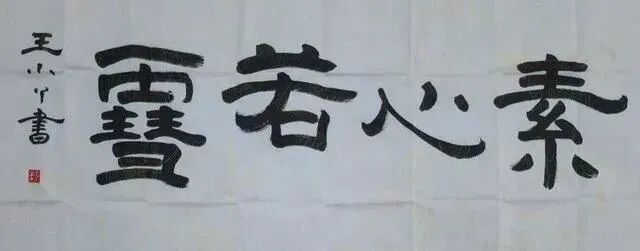 素心若䨮
王小丫書